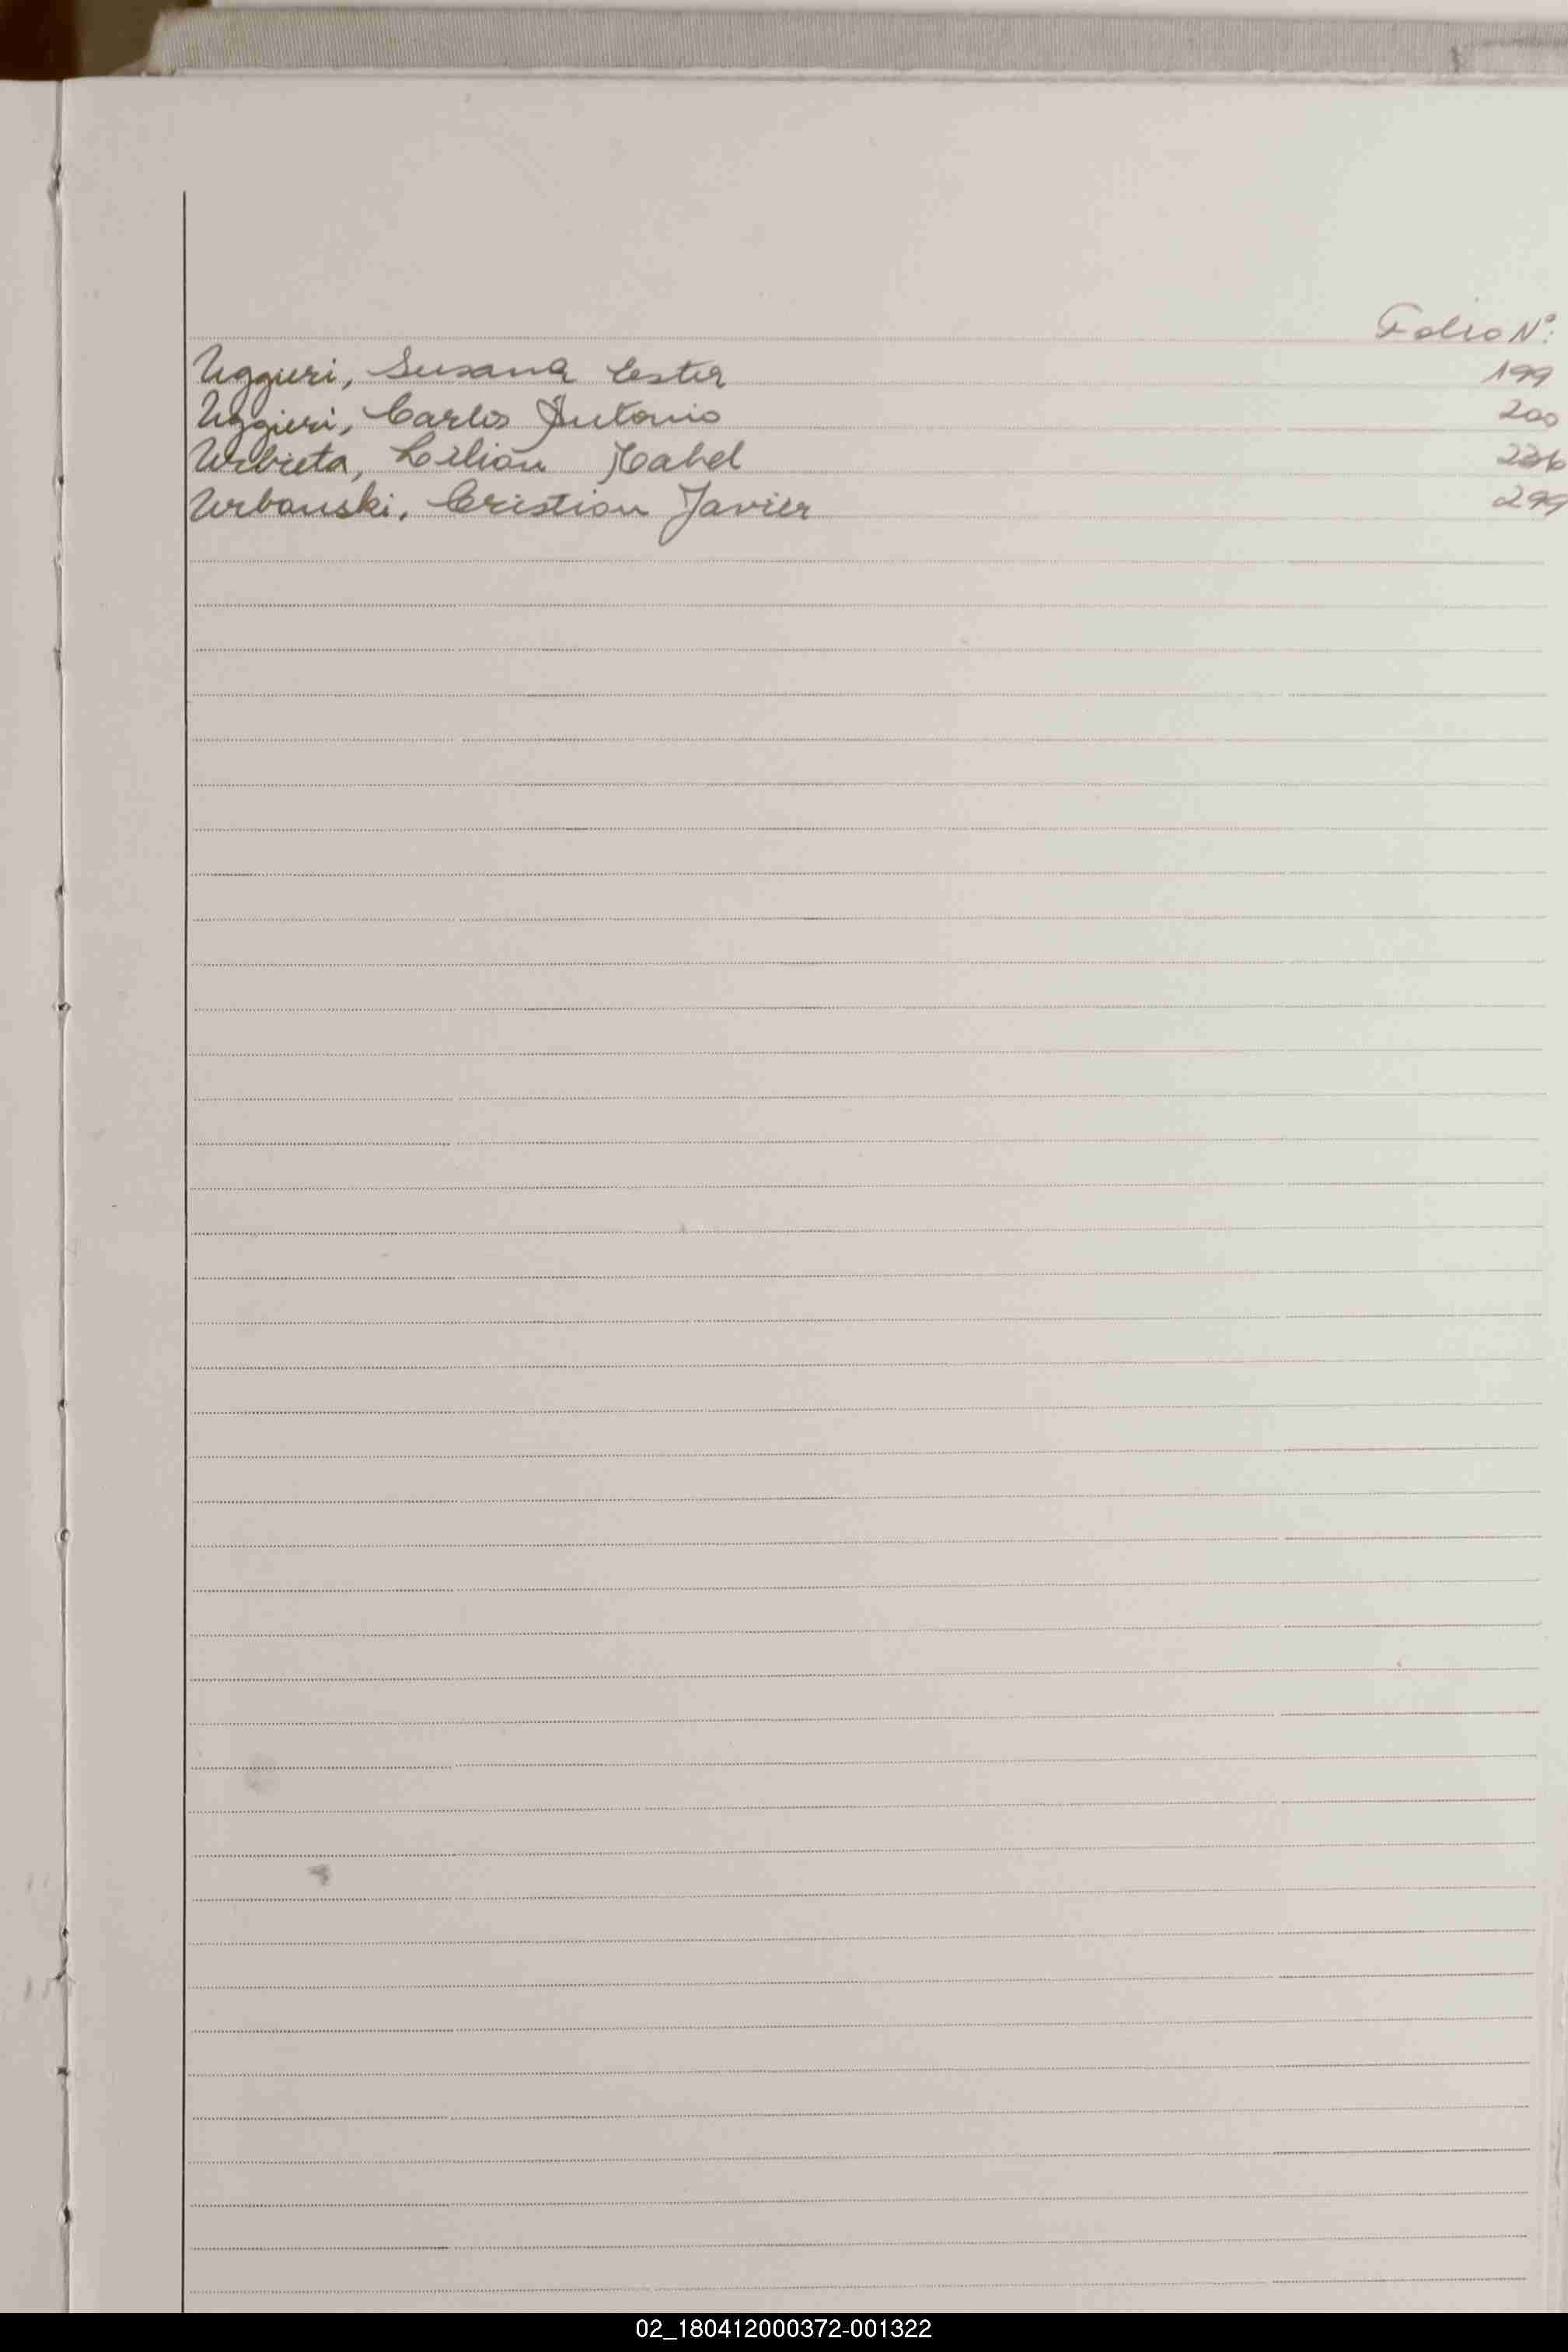 Folio Nº:
Uggieri, Susana Ester 199
Uggieri, Carlos Antonio 200
Urbieta, Lilian Mabel 236
Urbanski, Cristian Javier 299
02_180412000372-001322